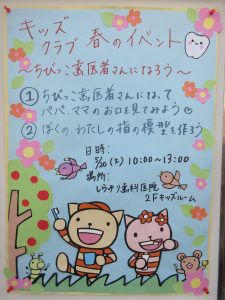 キッズ
クラブ 春のイベント
～ちびっこ歯医者さんになろう～
① ちびっこ歯医者さんになって
パパ、ママのお口を見てみよう
② ぼくの、わたしの指の模型を作ろう
日時:
5/20(土) 10:00～13:00
場所:
しらゆり歯科医院
2Fキッズルーム